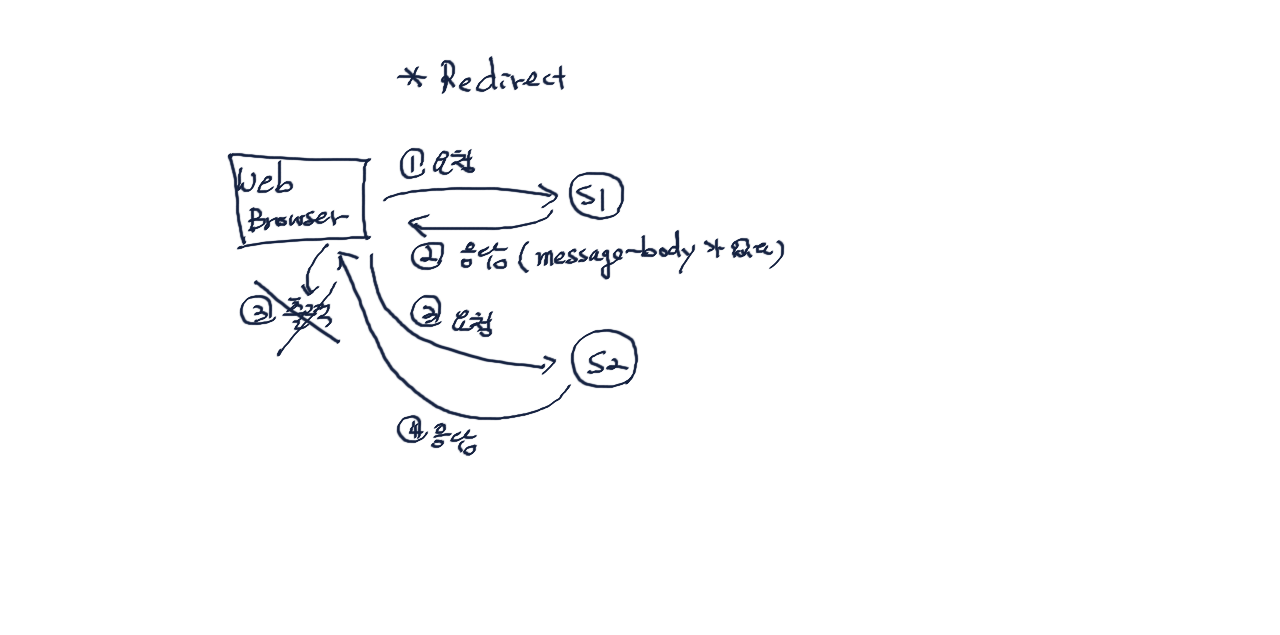 * Redirect
Web
Browser
① 요청
S1
② 응답 (message-body * 없다)
③ 출력
③ 요청
S2
④ 응답